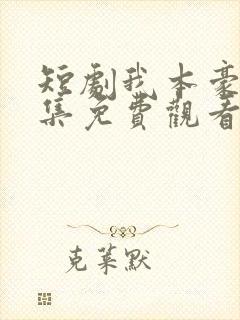 短劇我本豪
集免費觀看
克萊默